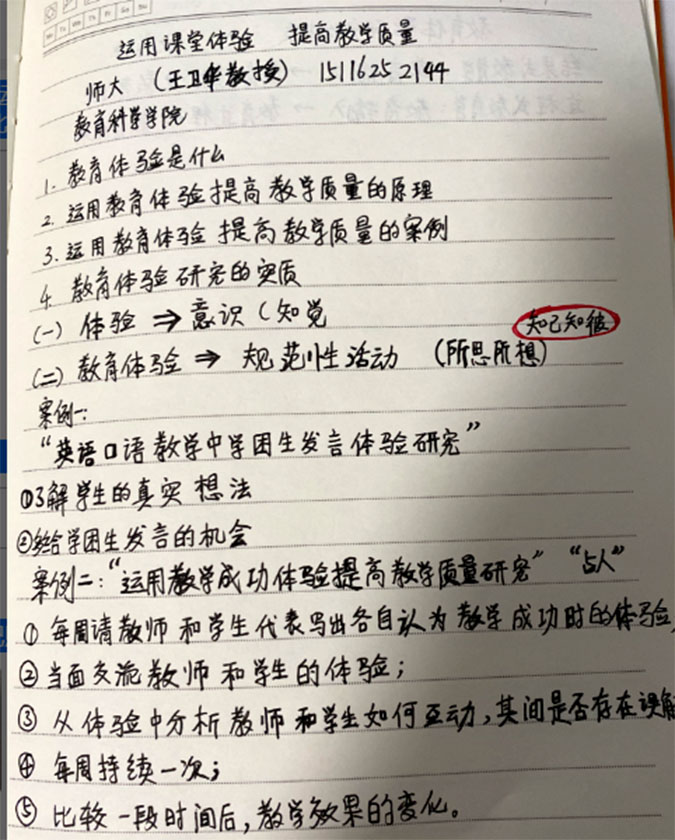 运用课堂体验 提高教学质量
师大 (王卫华教授) 15116252144
教育科学学院
1. 教育体验是什么
2. 运用教育体验提高教学质量的原理
3. 运用教育体验提高教学质量的案例
4. 教育体验研究的实质
(一) 体验 ⇒ 意识 (知觉
知己知彼
(二) 教育体验 ⇒ 规范性活动 (所思所想)
案例一:
“英语口语教学中学困生发言体验研究”
①了解学生的真实想法
②多给学困生发言的机会
案例二:“运用教学成功体验提高教学质量研究” “5人”
① 每周请教师和学生代表写出各自认为教学成功时的体验,
② 当面交流教师和学生的体验;
③ 从体验中分析教师和学生如何互动,其间是否存在误解
④ 每周持续一次;
⑤ 比较一段时间后,教学效果的变化。